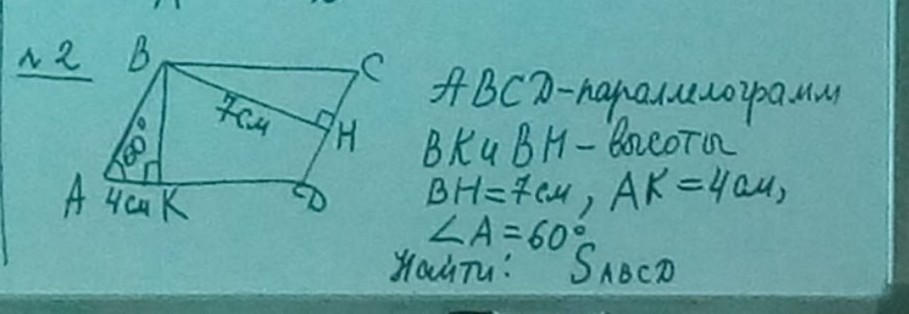 № 2
B
C
7см
60°
H
A 4см K D
ABCD-параллелограмм
BK и BH - высоты
BH=7см, AK=4см,
∠A=60°
Найти: S ABCD